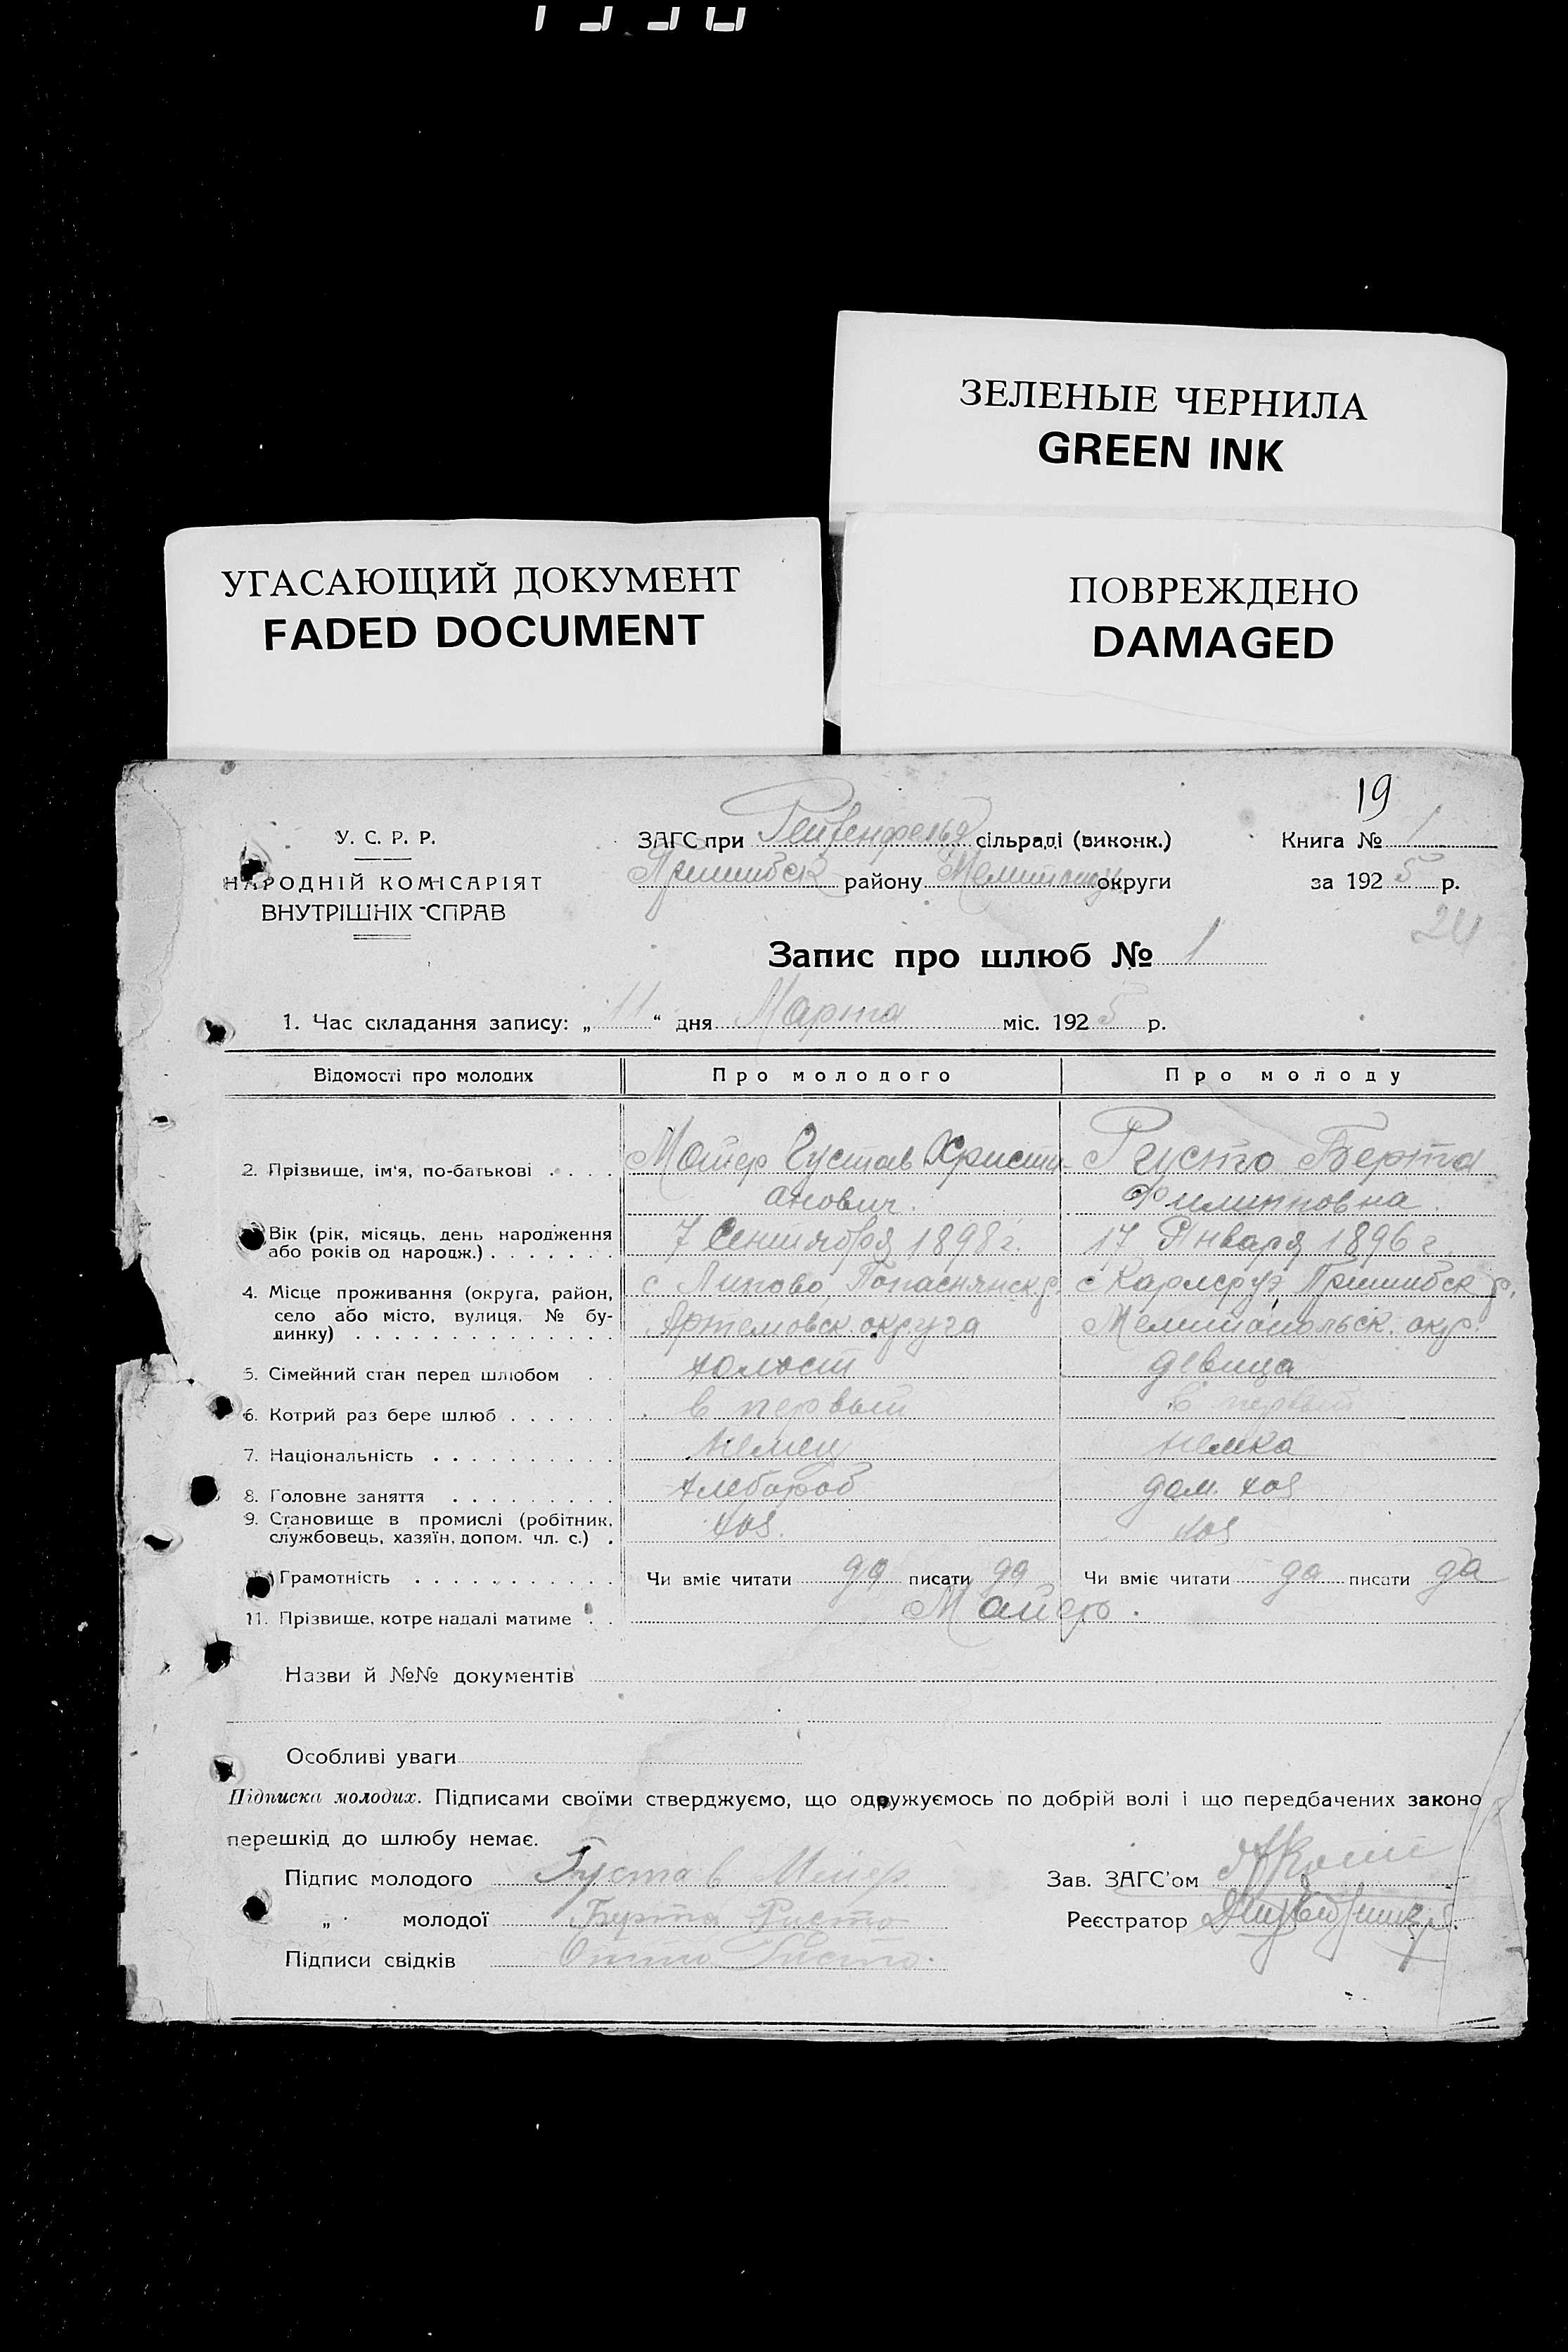 ЗЕЛЕНЫЕ ЧЕРНИЛА
GREEN INK
УГАСАЮЩИЙ ДОКУМЕНТ
FADED DOCUMENT
ПОВРЕЖДЕНО
DAMAGED
19
У. С. Р. Р.
НАРОДНІЙ КОМІСАРІЯТ
ВНУТРІШНІХ СПРАВ
ЗАГС при сільраді (виконк.)
Пришибск району округи
Книга № 1
за 1925 р.
24
Запис про шлюб № 1
1. Час складання запису: „ 11 “ дня Марта міс. 1925 р.
Відомості про молодих Про молодого Про молоду
2. Прізвище, ім'я, по-батькові . . . . Майер Густав Христи- Берта
анович. Филипповна.
Вік (рік, місяць, день народження 7 Сентября 1898 г. 17 Января 1896 г.
або років од народж.) . . . . . . .
4. Місце проживання (округа, район, с Липово, Попаснянск р. с Карлсруэ, Пришибск р.
село або місто, вулиця, № бу- Артемовск. округа Мелитопольск. окр.
динку) . . . . . . . . . . . . . .
5. Сімейний стан перед шлюбом . . холост девица
6. Котрий раз бере шлюб . . . . . . в первый в первый
7. Національність . . . . . . . . . немец немка
8. Головне заняття . . . . . . . . . хлебороб дом. хоз
9. Становище в промислі (робітник, хоз. хоз
службовець, хазяїн, допом. чл. с.) .
Грамотність . . . . . . . . . . . Чи вміє читати да писати да Чи вміє читати да писати да
11. Прізвище, котре надалі матиме . . Майер.
Назви й №№ документів
Особливі уваги
Підписка молодих. Підписами своїми стверджуємо, що одружуємось по добрій волі і що передбачених законо
перешкід до шлюбу немає.
Підпис молодого Густав Майер
Зав. ЗАГС'ом
„ молодої Берта
Реєстратор
Підписи свідків Отто